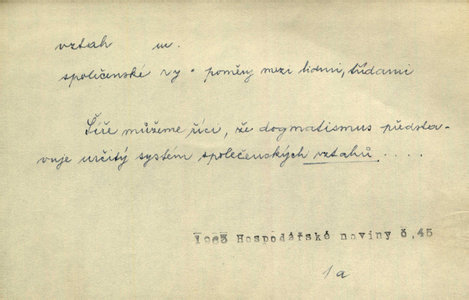 vztah m.
společenské vy - poměry mezi lidmi, třídami
Šíře můžeme říci, že dogmatismus předsta-
vuje určitý systém společenských vztahů ....
1963 Hospodářské noviny č.45
1a